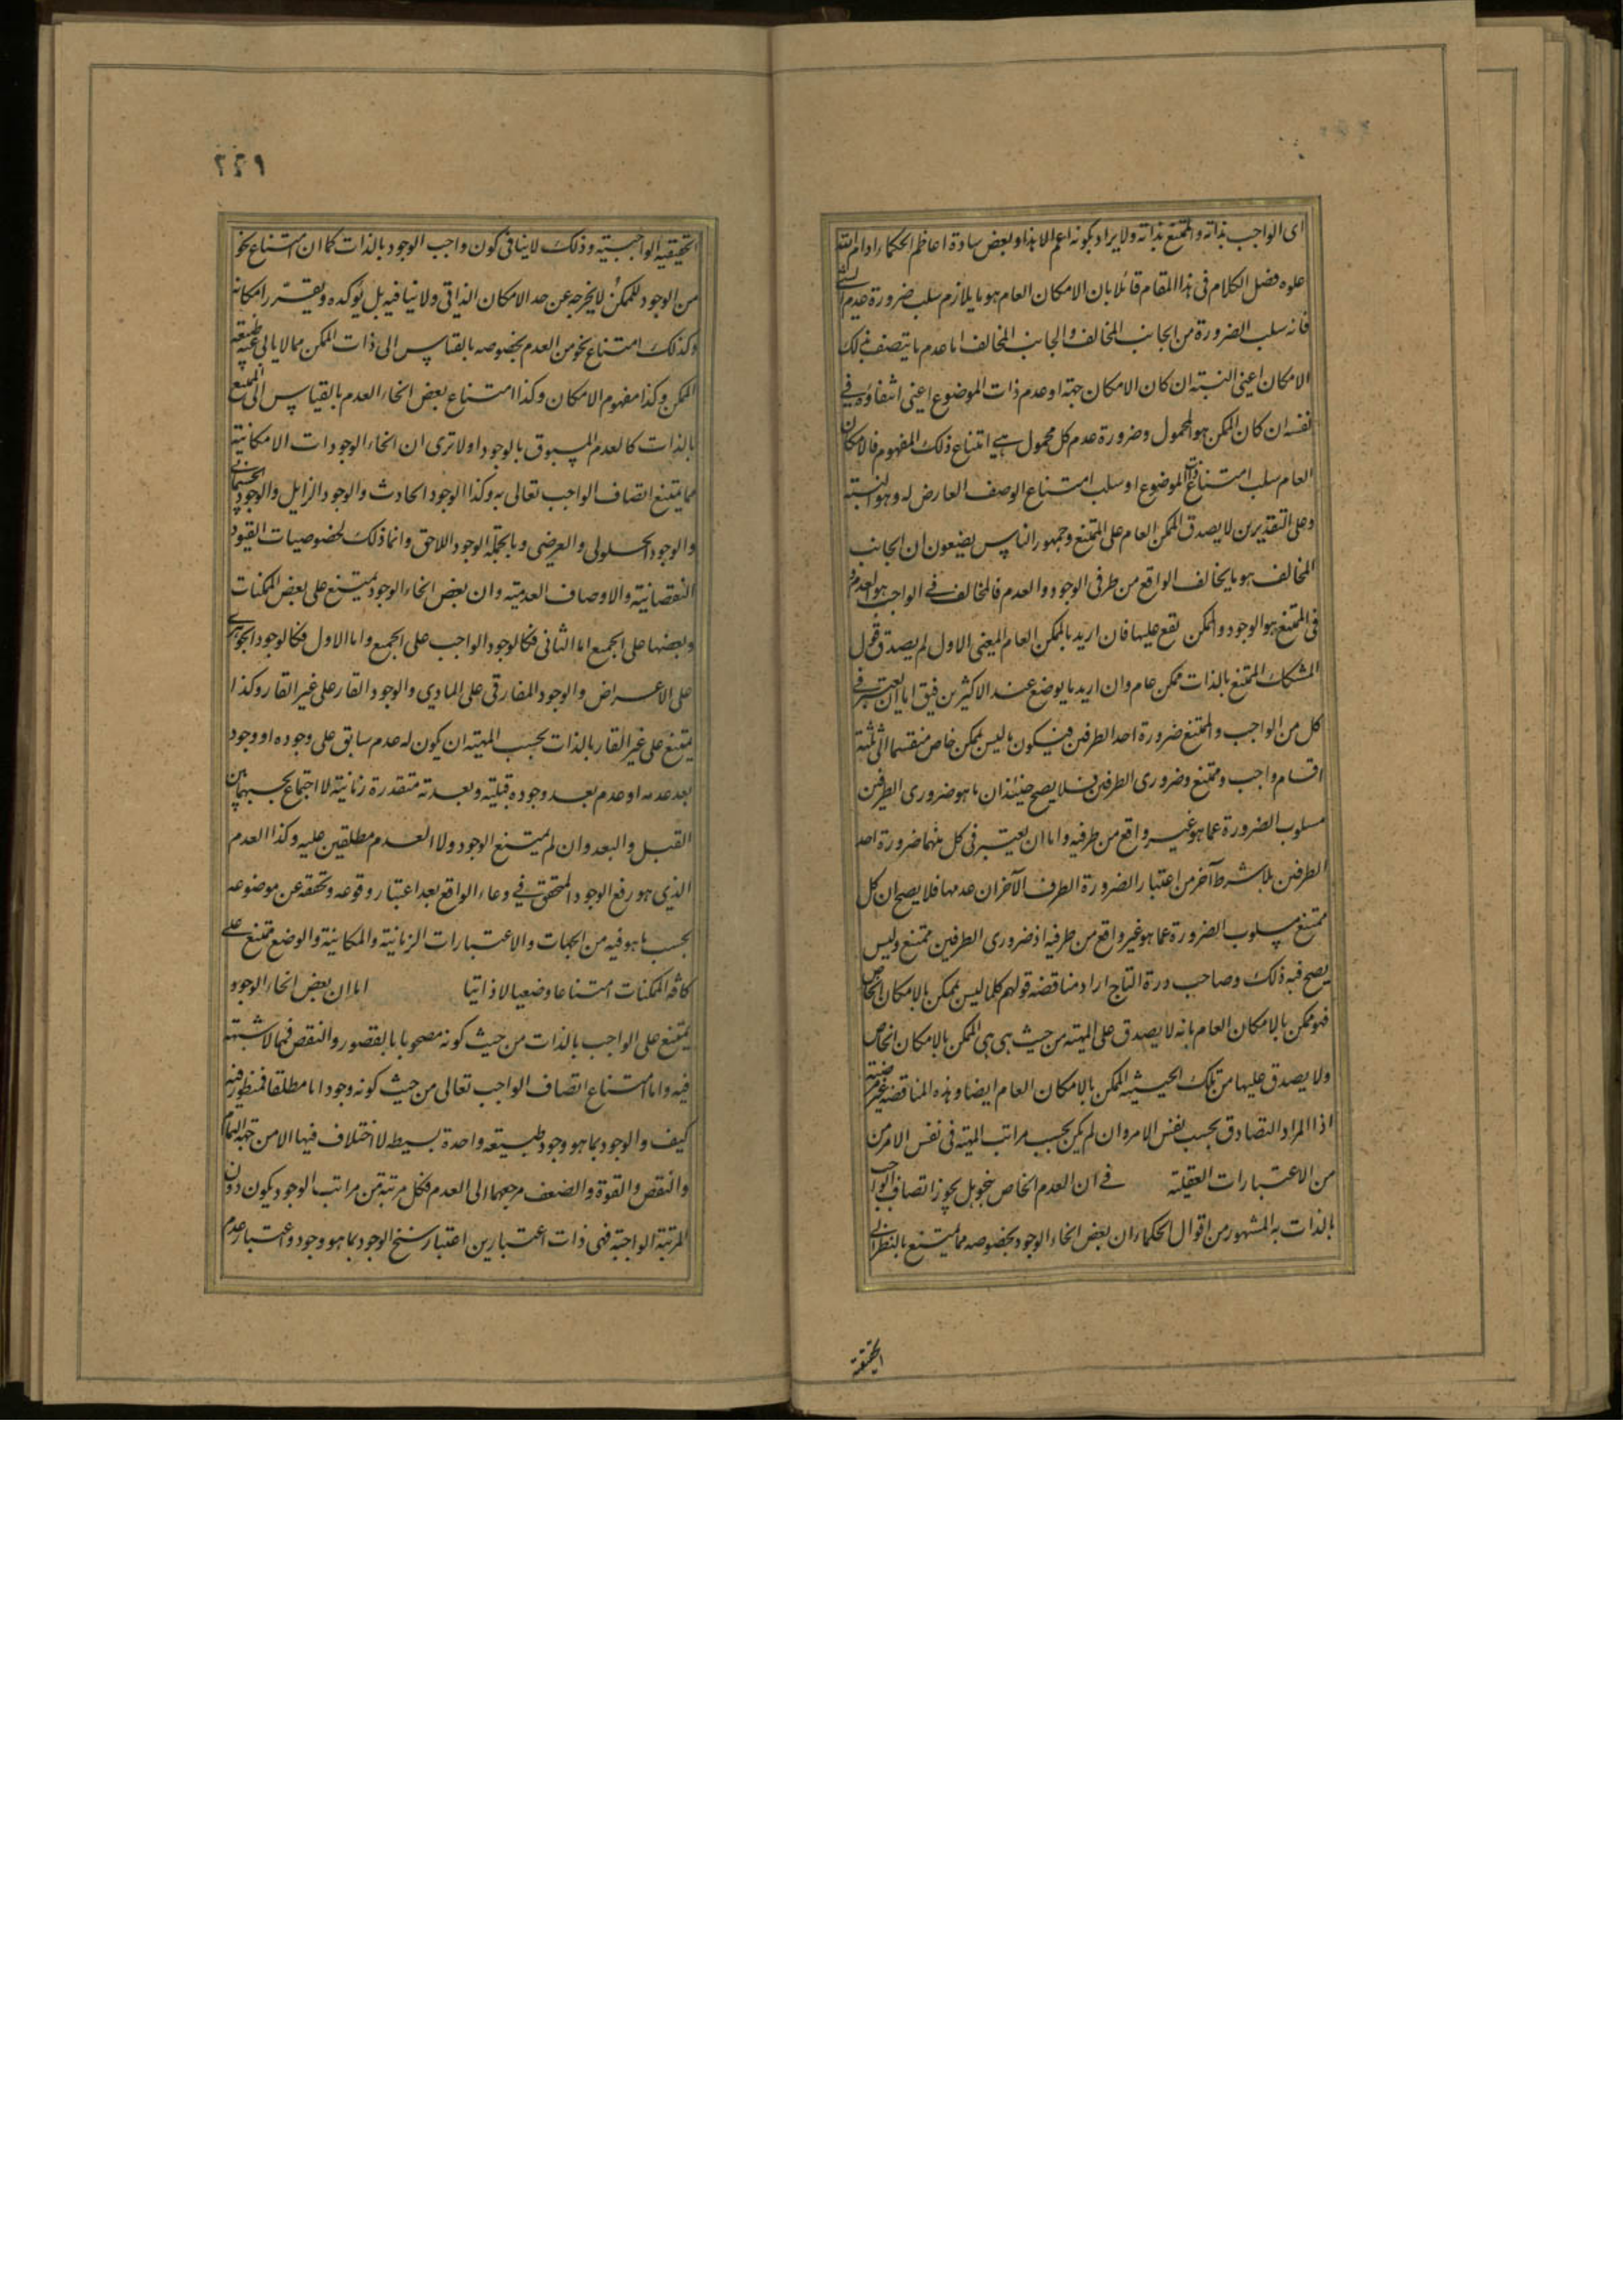 اى الواجب بذاته والممتنع بذاته ولا يراد بكونه اعم الا هذا وبعض سادة اعاظم الحكماء ادام الله
علوه فصل الكلام فى هذا المقام قائلا بان الامكان العام هو ما يلازم سلب ضرورة عدم
فانه سلب الضرورة من الجانب المخالف والجانب المخالف اما عدم ما يتصف بذلك
الامكان اعنى النسبة ان كان الامكان جهة او عدم ذات الموضوع اعنى انتفاؤه فى
نفسه ان كان الممكن هو المحمول وضرورة عدم كل محمول هى امتناع ذلك المفهوم فالامكان
العام سلب امتناع ذات الموضوع او سلب امتناع الوصف العارض له وهو النسبة
وعلى التقديرين لا يصدق الممكن العام على الممتنع وجمهور الناس يضعون ان الجانب
المخالف هو ما يخالف الواقع من طرفى الوجود والعدم فالمخالف فى الواجب هو العدم و
فى الممتنع هو الوجود والممكن يقع عليها فان اريد بالممكن العام المعنى الاول لم يصدق قول
المشكك الممتنع بالذات ممكن عام وان اريد ما يوضع عند الاكثرين فيق اما ان يعتبر فى
كل من الواجب والممتنع ضرورة احد الطرفين فيكون ما ليس بممكن خاص منقسما الى ثلثة
اقسام واجب وممتنع وضرورى الطرفين فلا يصح حينئذ ان ما هو ضرورى الطرفين
مسلوب الضرورة عما هو غير واقع من طرفيه واما ان يعتبر فى كل منهما ضرورة احد
الطرفين بلا شرط آخر من اعتبار الضرورة الطرف الآخر ان عدمها فلا يصح ان كل
ممتنع مسلوب الضرورة عما هو غير واقع من طرفيه اذ ضرورى الطرفين ممتنع وليس
يصح فيه ذلك وصاحب درة التاج اراد مناقضة قولهم كلما ليس بممكن بالامكان الخاص
فهو ممكن بالامكان العام بانه لا يصدق على المهية من حيث هى هى الممكن بالامكان الخاص
ولا يصدق عليها من تلك الحيثية الممكن بالامكان العام ايضا وهذه المناقضة غير مرضية
اذ المراد التصادق بحسب نفس الامر وان لم يكن بحسب مراتب المهية فى نفس الامر من
من الاعتبارات العقلية فى ان العدم الخاص بنحو هل يجوز اتصاف الواجب
بالذات به المشهور من اقوال الحكماء ان بعض انحاء الوجود بخصوصه مما يمتنع بالنظر الى
الحقيقة
٢٢٩
الحقيقة الواجبية وذلك لا ينافى كون واجب الوجود بالذات كما ان امتناع نحو
من الوجود للممكن لا يخرجه عن حد الامكان الذاتى ولا ينافيه بل يؤكده ويقرر امكانه
وكذلك امتناع نحو من العدم بخصوصه بالقياس الى ذات الممكن مما لا يابى عنه طبيعة
الممكن وكذا مفهوم الامكان وكذا امتناع بعض انحاء العدم بالقياس الى الممتنع
بالذات كالعدم المسبوق بالوجود اولا ترى ان انحاء الوجودات الامكانية
مما يمتنع اتصاف الواجب تعالى به وكذا الوجود الحادث والوجود الزايل والوجود الجسمانى
والوجود الحلولى والعرضى وبالجملة الوجود اللاحق وانما ذلك لخصوصيات القيود
النقصانية والاوصاف العدمية وان بعض انحاء الوجود يمتنع على بعض الممكنات
وبعضها على الجميع اما الثانى فكالوجود الواجب على الجميع واما الاول فكالوجود الجوهرى
على الاعراض والوجود المفارقى على المادى والوجود القار على غير القار وكذا
يمتنع على غير القار بالذات بحسب المهية ان يكون له عدم سابق على وجوده او وجود
بعد عدمه او عدم بعد وجوده قبلية وبعدية متقدرة زمانية لا اجتماع بحسبهما بين
القبل والبعد وان لم يمتنع الوجود ولا العدم مطلقين عليه وكذا العدم
الذى هو رفع الوجود المتحقق فى وعاء الواقع بعد اعتبار وقوعه وتحققه عن موضوعه
بحسب ما هو فيه من الجهات والاعتبارات الزمانية والمكانية والوضع ممتنع على
كافة الممكنات امتناعا وضعيا لا ذاتيا اما ان بعض انحاء الوجود
يمتنع على الواجب بالذات من حيث كونه مصحوبا بالقصور والنقص فمما لا شبهة
فيه واما امتناع اتصاف الواجب تعالى من حيث كونه وجودا ما مطلقا فمنظور فيه
كيف والوجود بما هو وجود طبيعة واحدة بسيطة لا اختلاف فيها الا من جهة التمام
والنقص والقوة والضعف مرجعهما الى العدم فكل مرتبة من مراتب الوجود يكون دون
المرتبة الواجبية فهى ذات اعتبارين اعتبار سنخ الوجود بما هو وجود واعتبار عدم